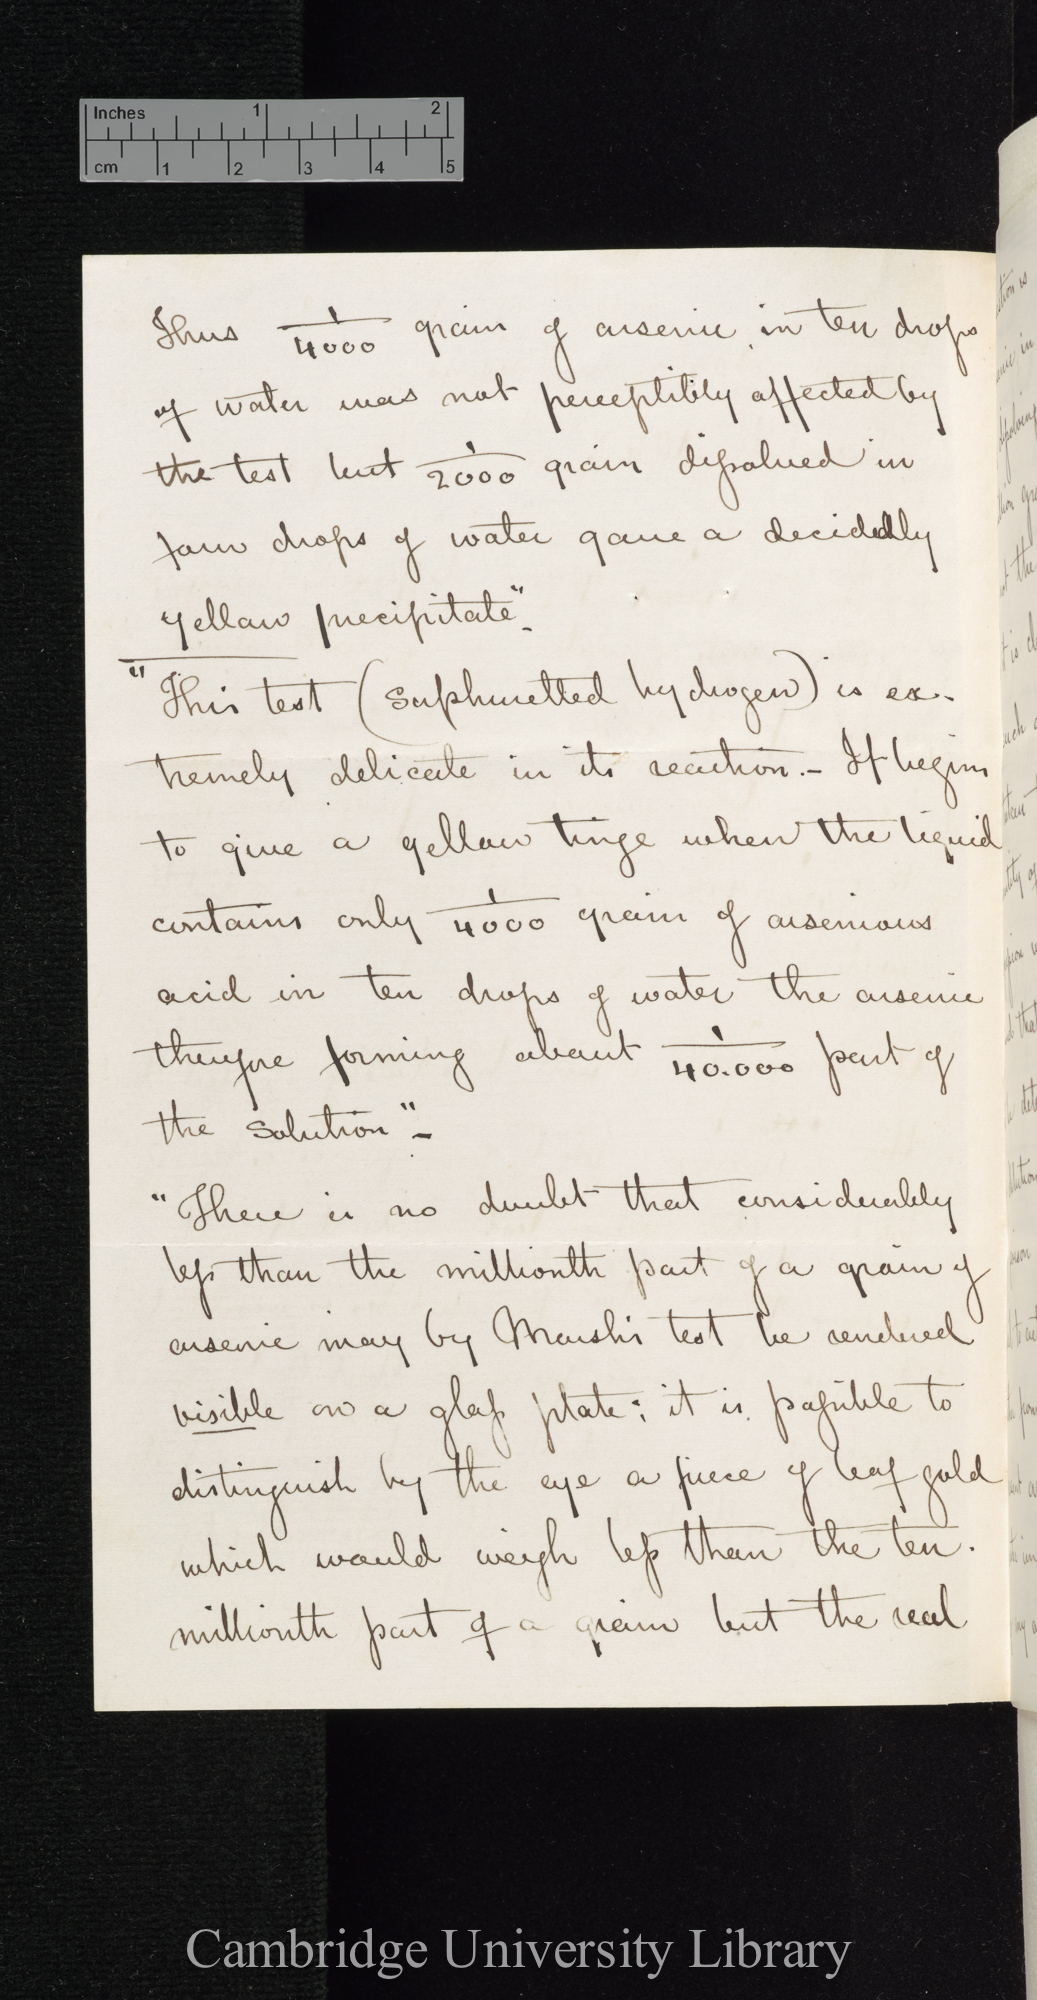 Inches 1 2
cm 1 2 3 4 5
Thus 1/4000 grain of arsenic in ten drops
of water was not perceptibly affected by
the test but 1/2000 grain dissolved in
four drops of water gave a decidedly
yellow precipitate".
"This test (Sulphuretted hydrogen) is ex-
tremely delicate in its reaction.- It begins
to give a yellow tinge when the liquid
contains only 1/4000 grain of arsenious
acid in ten drops of water the arsenic
therefore forming about 1/40.000 part of
the solution"-
"There is no doubt that considerably
less than the millionth part of a grain of
arsenic may by Marsh's test be rendered
visible on a glass plate: it is possible to
distinguish by the eye a piece of leaf gold
which would weigh less than the ten-
millionth part of a grain but the real
Cambridge University Library